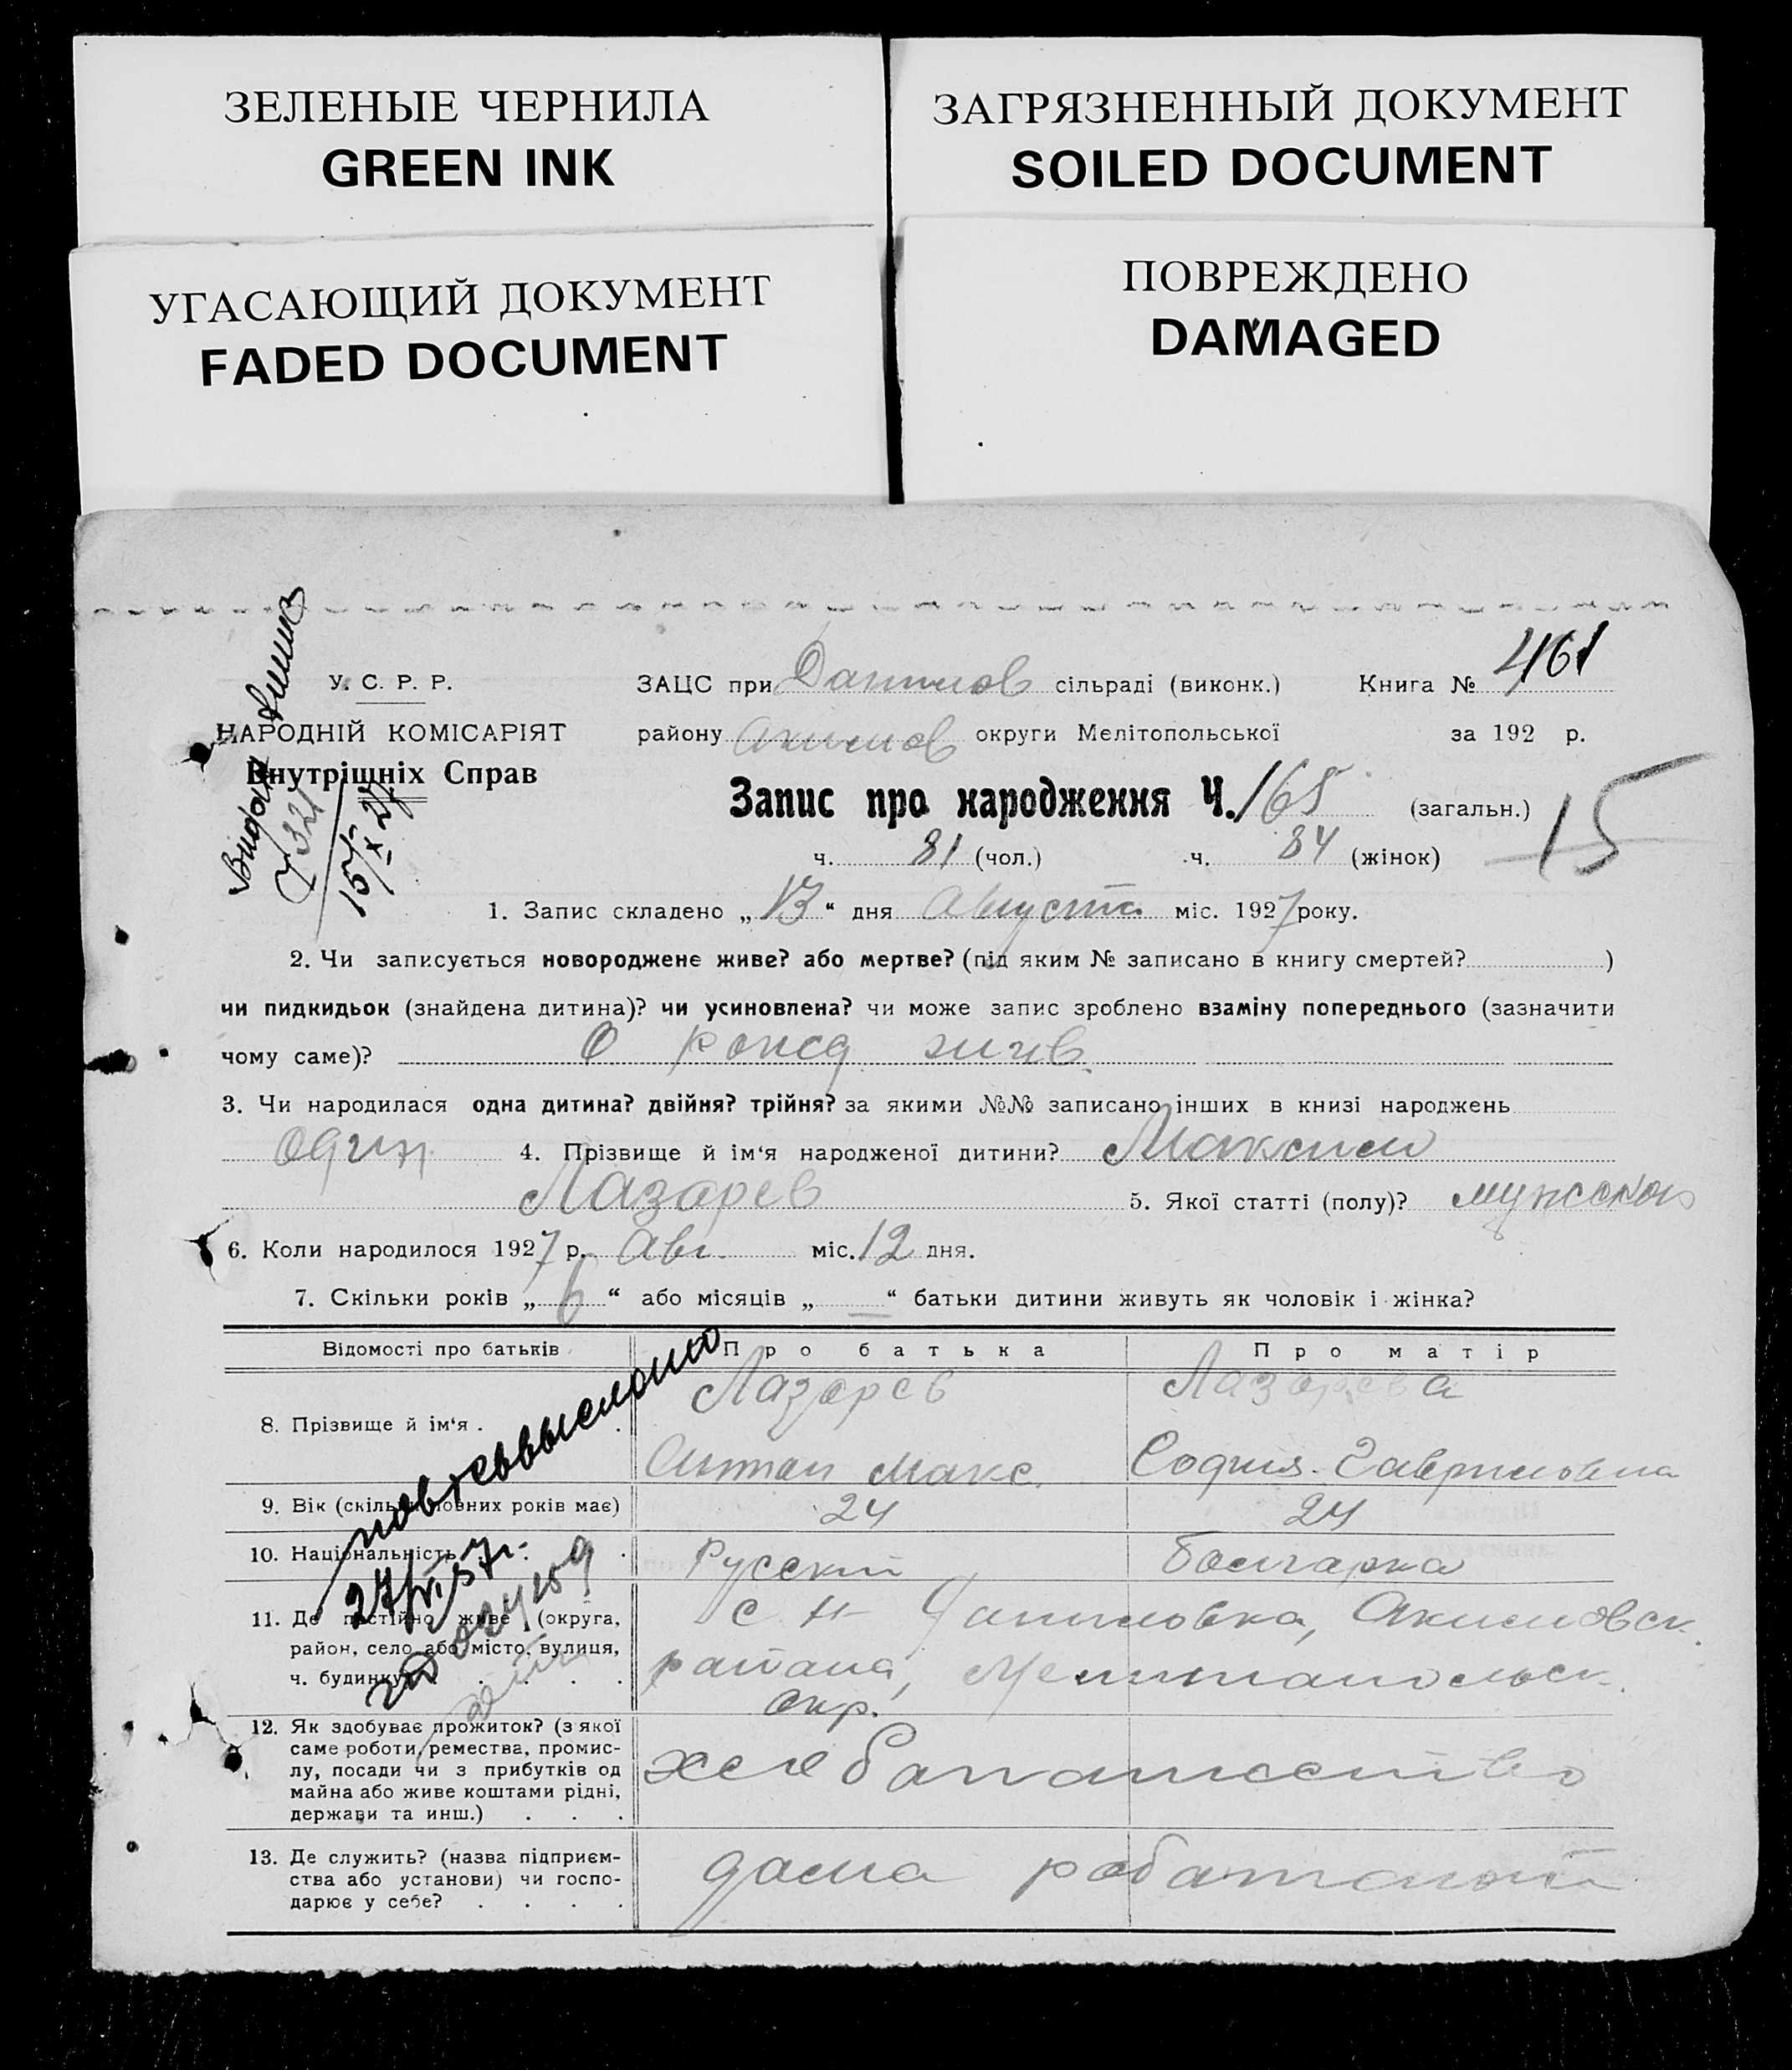 ЗЕЛЕНЫЕ ЧЕРНИЛА
GREEN INK
ЗАГРЯЗНЕННЫЙ ДОКУМЕНТ
SOILED DOCUMENT
УГАСАЮЩИЙ ДОКУМЕНТ
FADED DOCUMENT
ПОВРЕЖДЕНО
DAMAGED
У. С. Р. Р.
НАРОДНІЙ КОМІСАРІЯТ
Внутрішніх Справ
ЗАЦС при Данилов сільраді (виконк.) Книга № 461
району Акимов округи Мелітопольської за 192 р.
Запис про народження Ч. 165 (загальн.) 15
ч. 81 (чол.) ч. 84 (жінок)
1. Запис складено „13“ дня Августа міс. 1927 року.
2. Чи записується новороджене живе? або мертве? (під яким № записано в книгу смертей? )
чи пидкидьок (знайдена дитина)? чи усиновлена? чи може запис зроблено взаміну попереднього (зазначити
чому саме)? О рожд жив.
3. Чи народилася одна дитина? двійня? трійня? за якими №№ записано інших в книзі народжень
один 4. Прізвище й ім‘я народженої дитини? Максим
Лазарев 5. Якої статті (полу)? мужской
6. Коли народилося 1927 р. Авг. міс. 12 дня.
7. Скільки років „6“ або місяців „—“ батьки дитини живуть як чоловік і жінка?
Відомості про батьків Про батька Про матір
8. Прізвище й ім‘я . .
Лазарев
Антон Макс.
Лазарева
София Гавриловна
9. Вік (скільки повних років має) 24 24
10. Національність . . . Русский болгарка
11. Де постійно живе (округа,
район, село або місто, вулиця,
ч. будинку) . . . .
Даниловка, Акимовск.
района, Мелитопольск.
окр.
12. Як здобуває прожиток? (з якої
саме роботи, ремества, промис-
лу, посади чи з прибутків од
майна або живе коштами рідні,
держави та инш.) . . .
хлебопашество
13. Де служить? (назва підприєм-
ства або установи) чи госпо-
дарює у себе? . . . .
дома
15/X 27